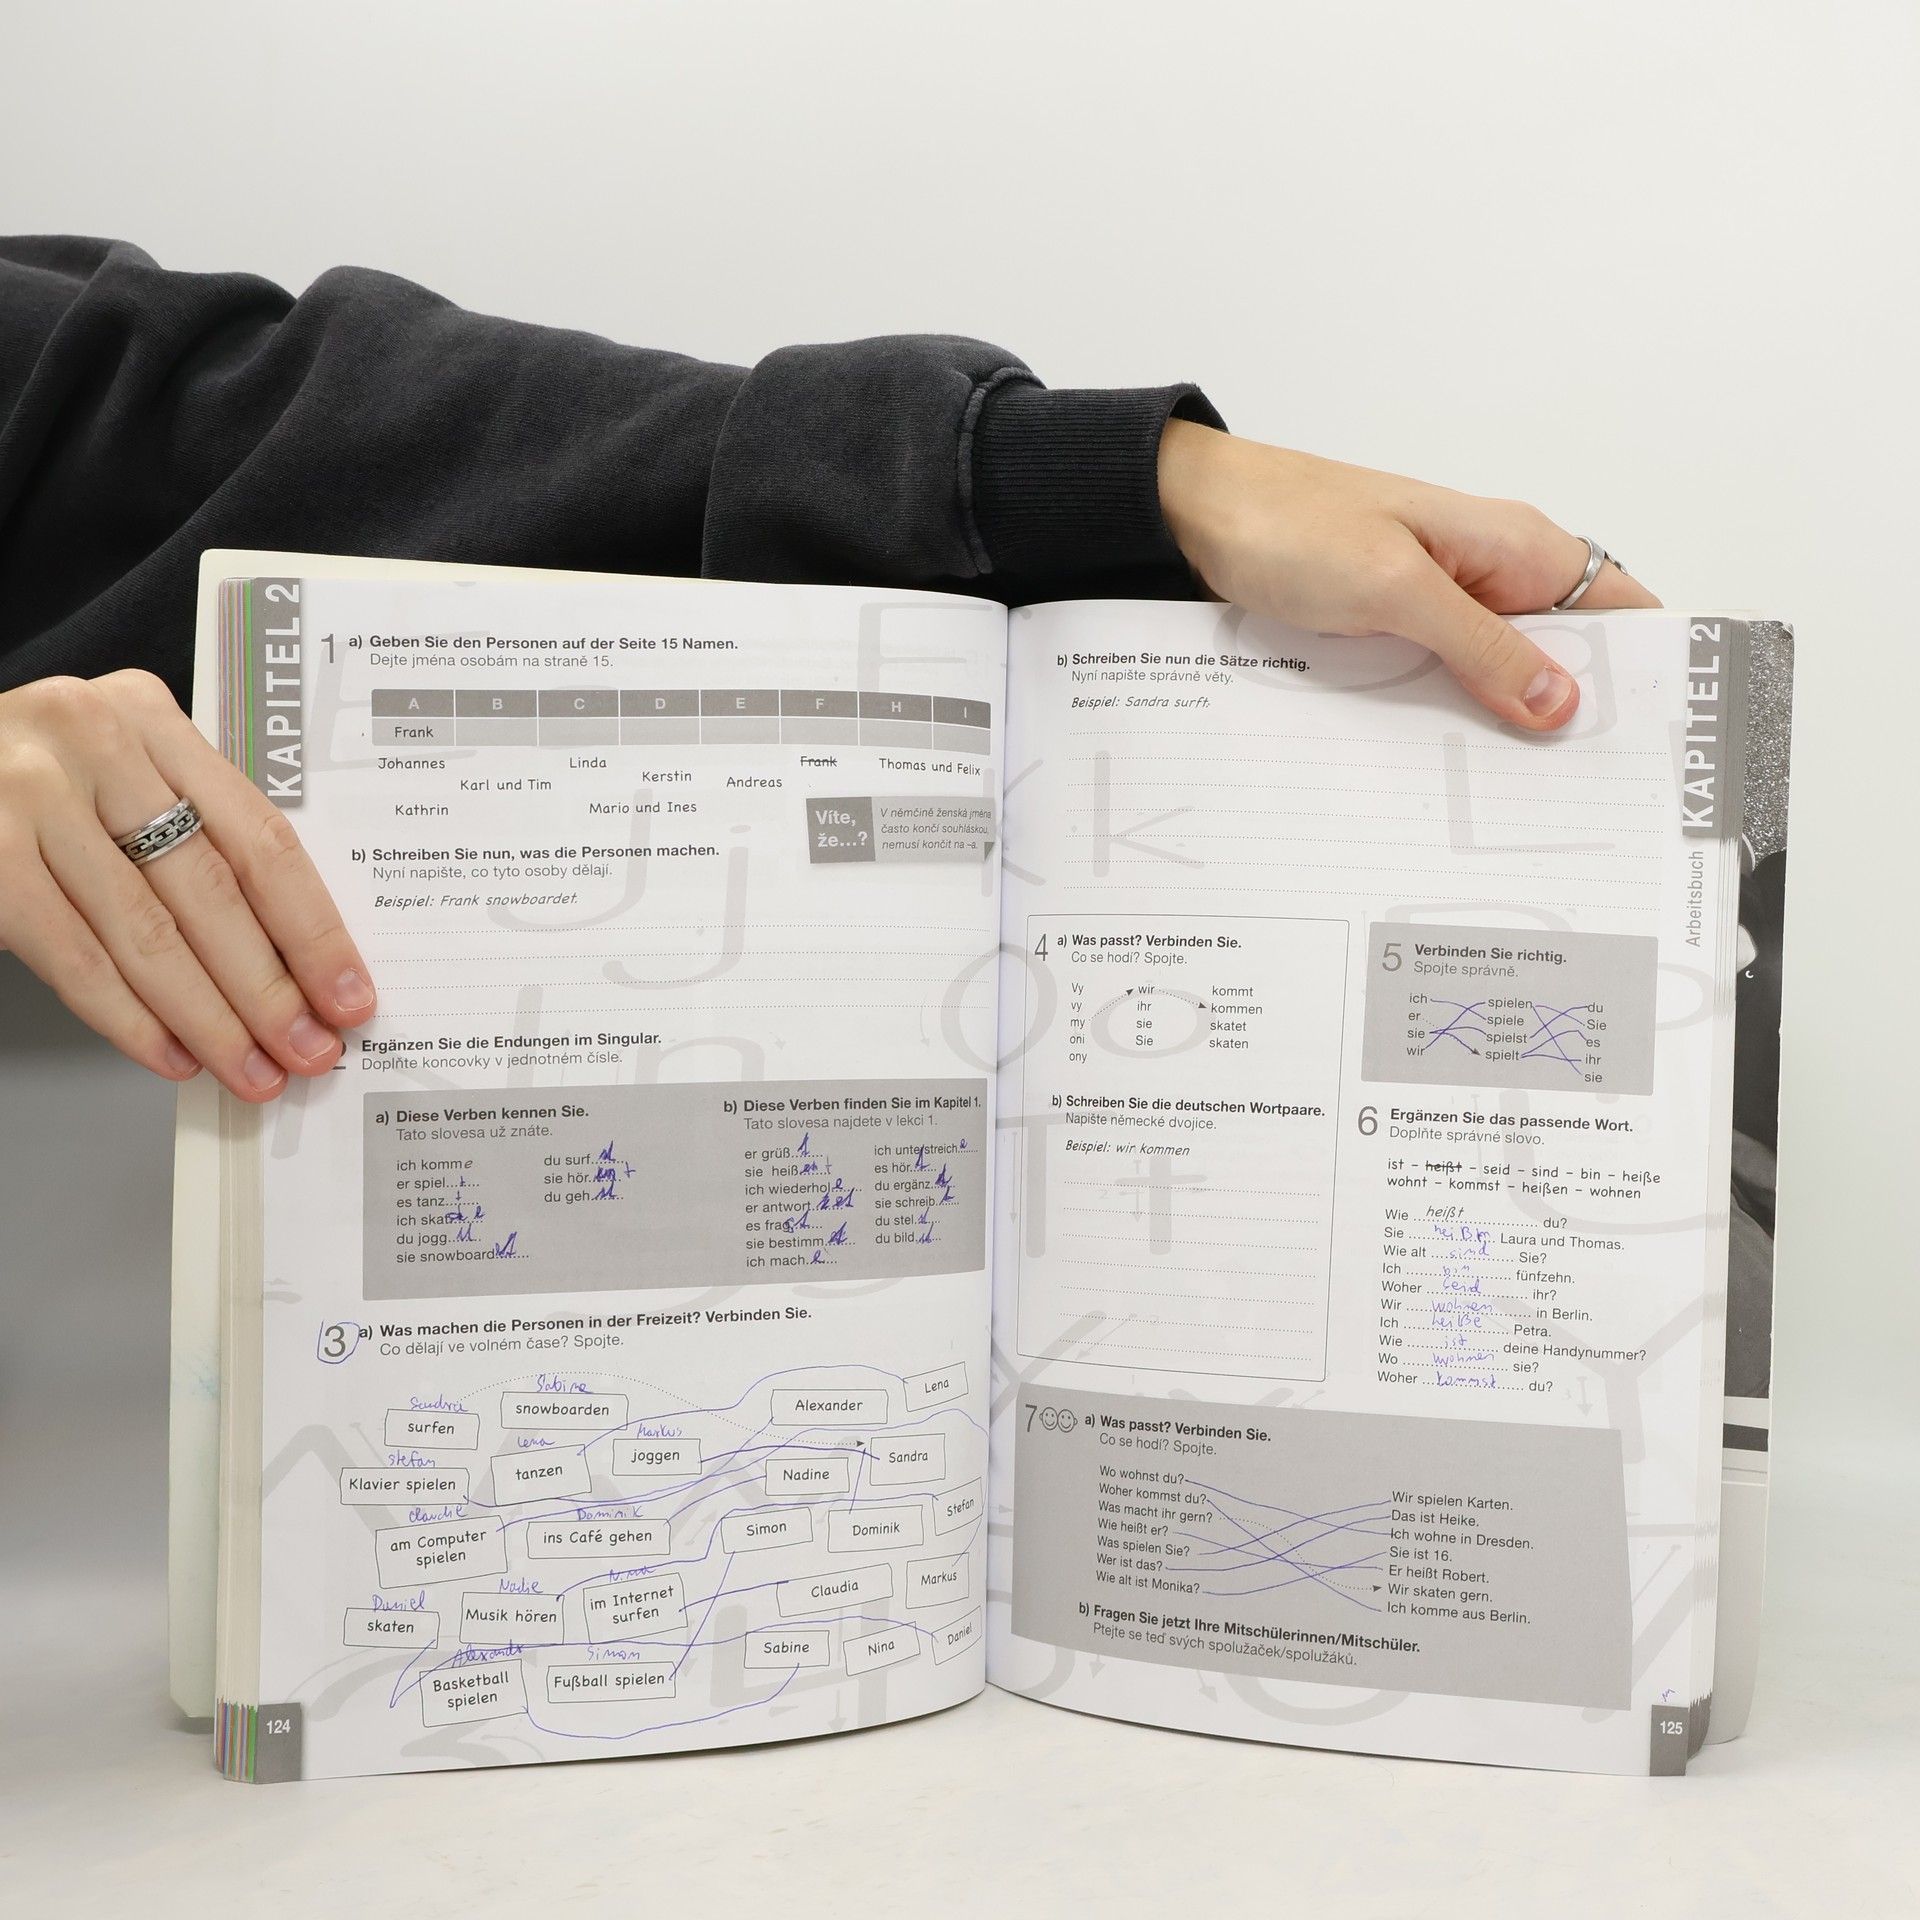 KAPITEL 2
1 a) Geben Sie den Personen auf der Seite 15 Namen.
Dejte jména osobám na straně 15.
A B C D E F H I
Frank
Johannes Linda Frank Thomas und Felix
Karl und Tim Kerstin Andreas
Kathrin Mario und Ines
Víte, že...?
V němčině ženská jména
často končí souhláskou,
nemusí končit na -a.
b) Schreiben Sie nun, was die Personen machen.
Nyní napište, co tyto osoby dělají.
Beispiel: Frank snowboardet.
Ergänzen Sie die Endungen im Singular.
Doplňte koncovky v jednotném čísle.
a) Diese Verben kennen Sie.
Tato slovesa už znáte.
ich komme
er spiel...t
es tanz...t
ich skat e
du jogg
sie snowboard
du surf
sie hör t
du geh
b) Diese Verben finden Sie im Kapitel 1.
Tato slovesa najdete v lekci 1.
er grüß t
sie heiß
ich wiederhol e
er antwort
es frag
sie bestimm
ich mach e
ich unterstreich e
es hör t
du ergänz
sie schreib t
du stel
du bild
3 a) Was machen die Personen in der Freizeit? Verbinden Sie.
Co dělají ve volném čase? Spojte.
Sandra
surfen
Sabine
snowboarden
Alexander
Lena
Stefan
Klavier spielen
Lena
tanzen
Markus
joggen
Nadine
Sandra
Claudie
am Computer
spielen
Dominik
ins Café gehen
Simon
Dominik
Stefan
Daniel
skaten
Nadie
Musik hören
Nina
im Internet
surfen
Claudia
Markus
Basketball
spielen
Simon
Fußball spielen
Sabine
Nina
Daniel
124
KAPITEL 2
Arbeitsbuch
b) Schreiben Sie nun die Sätze richtig.
Nyní napište správně věty.
Beispiel: Sandra surft.
4 a) Was passt? Verbinden Sie.
Co se hodí? Spojte.
Vy wir kommt
vy ihr kommen
my sie skatet
oni Sie skaten
ony
b) Schreiben Sie die deutschen Wortpaare.
Napište německé dvojice.
Beispiel: wir kommen
5 Verbinden Sie richtig.
Spojte správně.
ich spielen du
er spiele Sie
sie spielst es
wir spielt ihr
sie
6 Ergänzen Sie das passende Wort.
Doplňte správné slovo.
ist – heißt – seid – sind – bin – heiße
wohnt – kommst – heißen – wohnen
Wie heißt du?
Sie heißen Laura und Thomas.
Wie alt sind Sie?
Ich bin fünfzehn.
Woher seid ihr?
Wir wohnen in Berlin.
Ich heiße Petra.
Wie ist deine Handynummer?
Wo wohnen sie?
Woher kommst du?
7 a) Was passt? Verbinden Sie.
Co se hodí? Spojte.
Wo wohnst du?
Woher kommst du?
Was macht ihr gern?
Wie heißt er?
Was spielen Sie?
Wer ist das?
Wie alt ist Monika?
Wir spielen Karten.
Das ist Heike.
Ich wohne in Dresden.
Sie ist 16.
Er heißt Robert.
Wir skaten gern.
Ich komme aus Berlin.
b) Fragen Sie jetzt Ihre Mitschülerinnen/Mitschüler.
Ptejte se teď svých spolužaček/spolužáků.
125